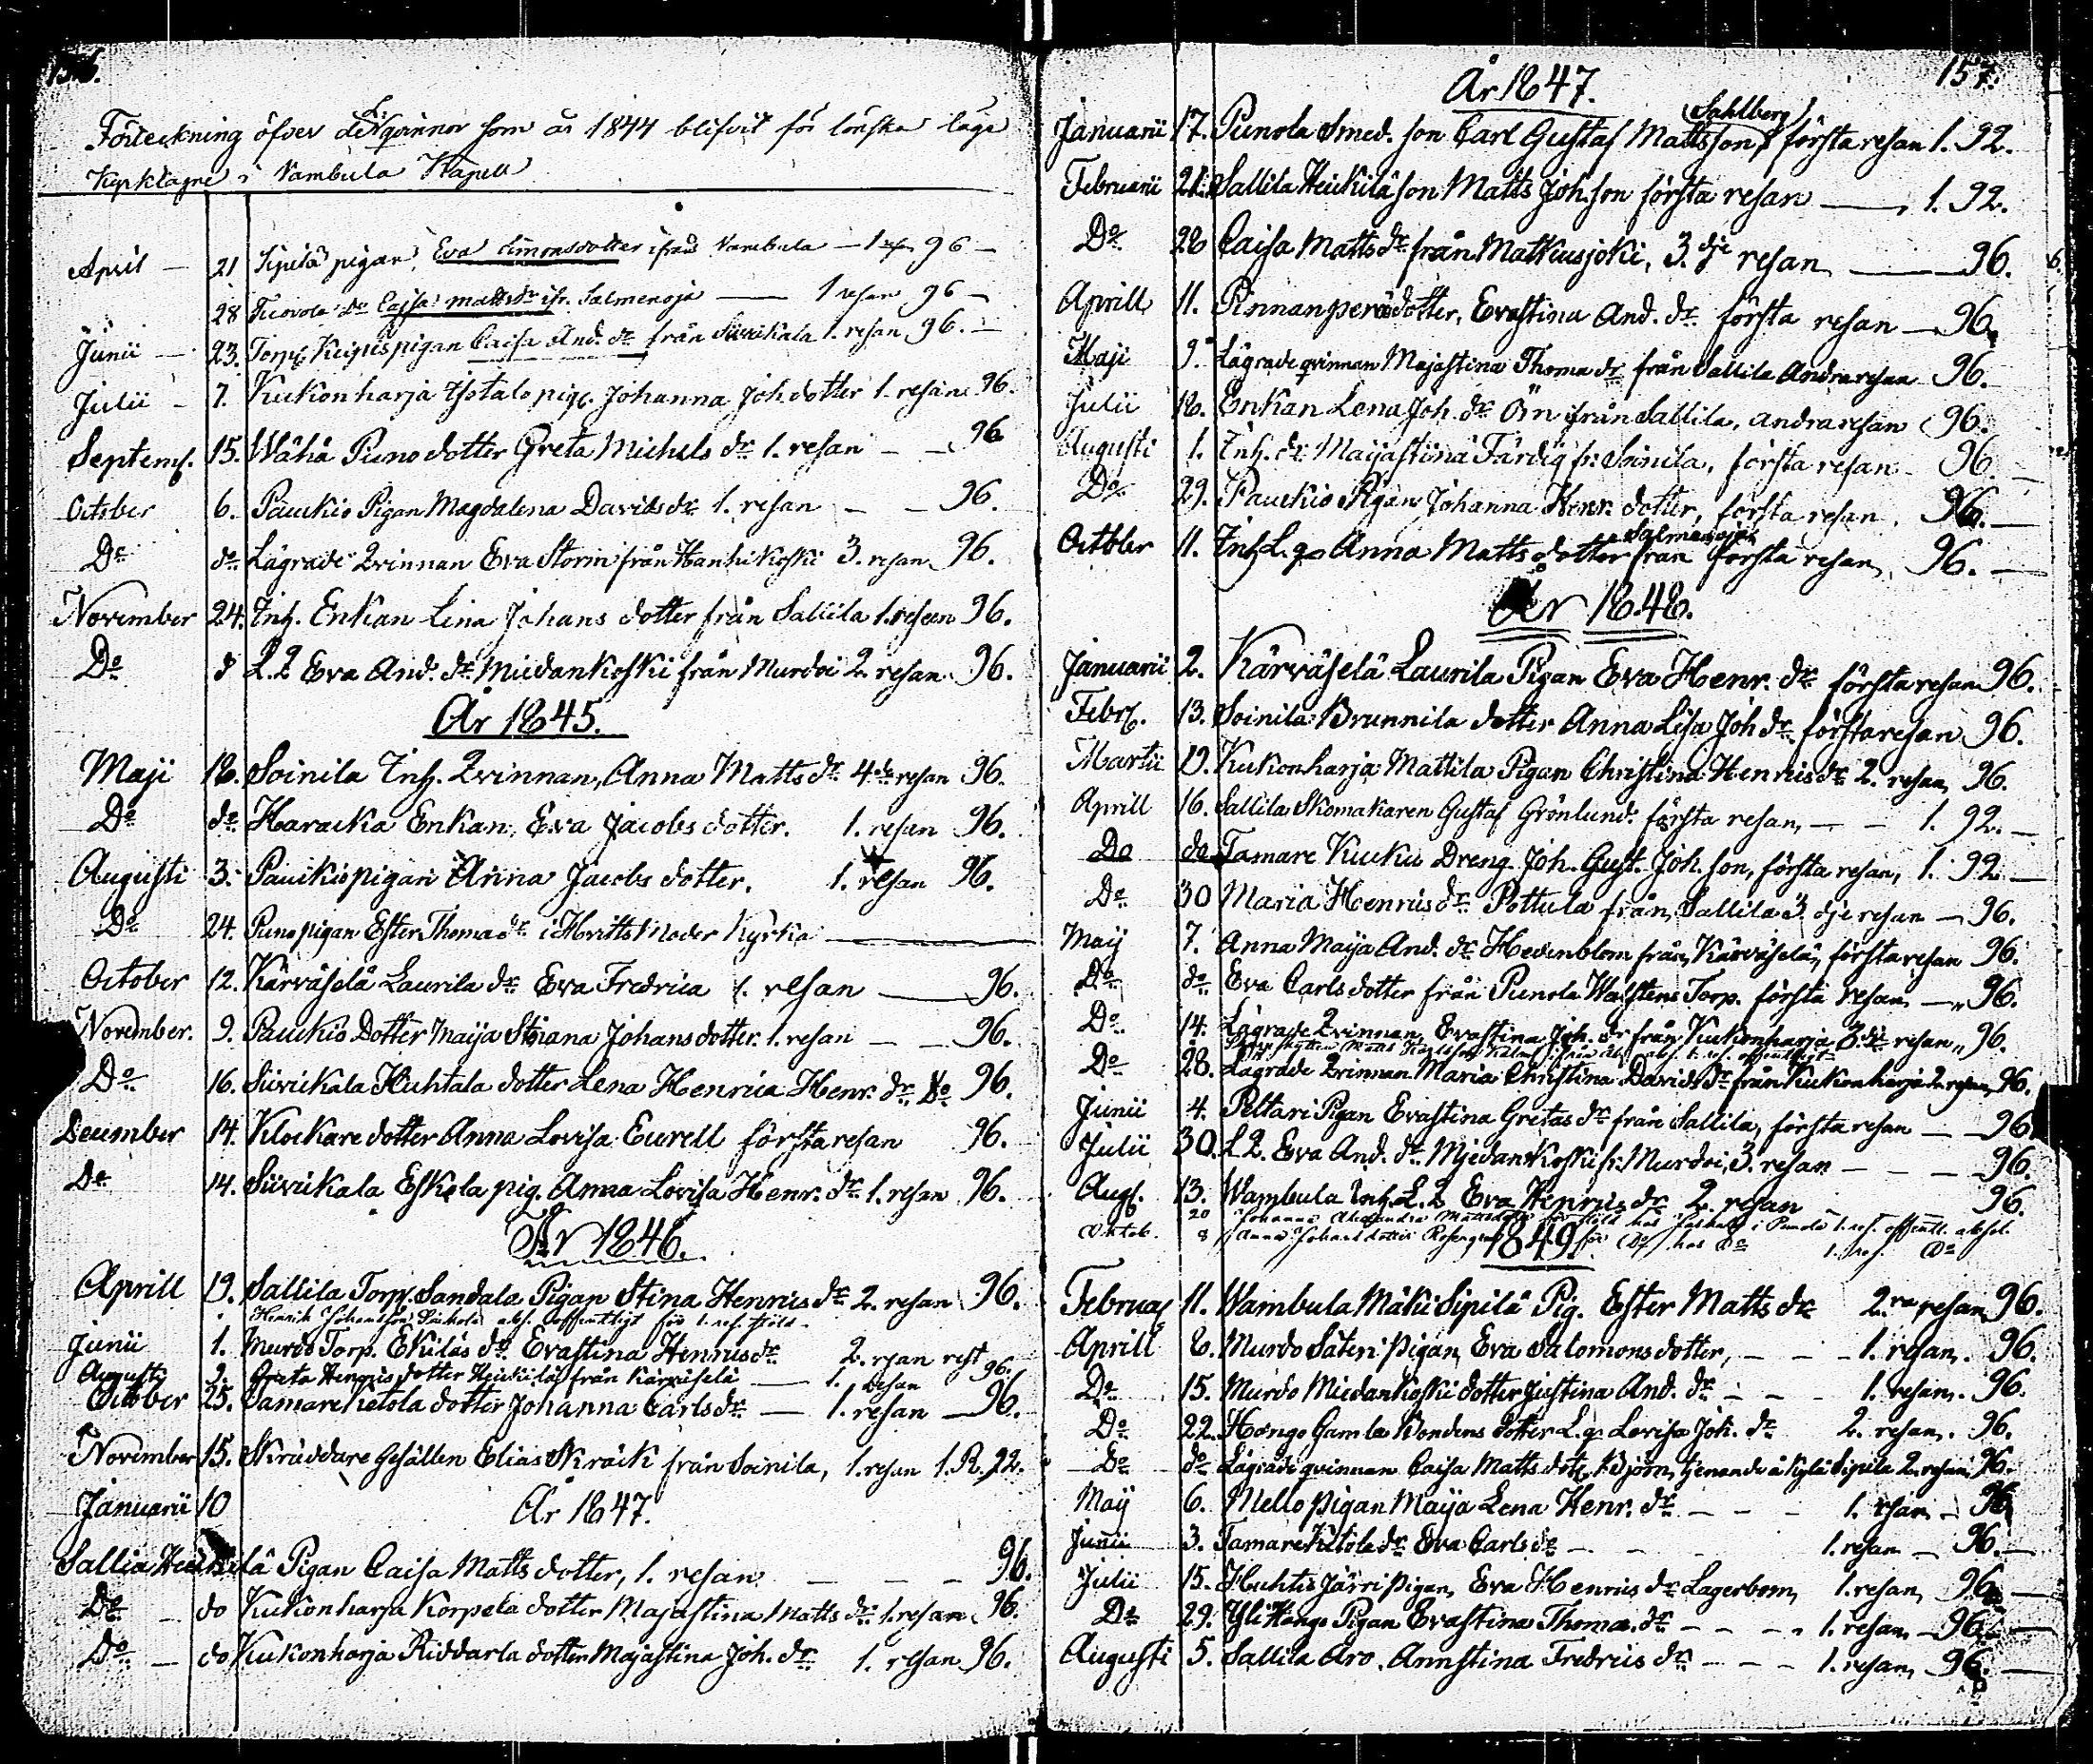 156.
Förteckning öfver qvinnor som år 1844 blifvit för lönska läge
Kyrktagne i Vambula Kapell
April — 21 Sipilä pigan, Eva Simonsdotter ifrån Vambula — 1 res 96 —
28 do Cajsa mattsdr ifr. Salmenoja — 1 resan 96 —
Junii — 23. Torp. pigan Caisa And. dr från Siivikala 1. resan 96. —
Julii — 7. Kukonharja Ylistalo pig. Johanna Joh dotter 1. resan 96.
Septemb. 15. Wähä Puno dotter Greta Michels dr 1. resan — — 96
October 6. Paukio Pigan Magdalena Davids dr 1. resan — — 96.
Do do Lägrade Qvinnan Eva Storm från Hanhikoski 3. resan 96.
November 24. Inh. Enkan Lina Johans dotter från Sallila 1. resan 96.
Do d L.Q Eva And. dr Miedankoski från Murdoi 2. resan 96.
År 1845.
Maji 18. Soinila Inh. Qvinnan, Anna Matts dr 4de resan 96.
Do do Haracka Enkan, Eva Jacobs dotter. 1. resan 96.
Augusti 3. Paukio pigan Anna Jacobs dotter. 1. resan 96.
Do 24. Puno pigan Ester Thoma dr i Hvittis Moder Kyrka —
October 12. Kärväselä Laurila dr Eva Fredrica 1. resan — 96.
November. 9. Paukio Dotter Maija Stiana Johans dotter. 1. resan — — 96.
Do 16. Siivikala Huhtala dotter Lena Henrica Henr. dr Do 96.
December 14. Klockare dotter Anna Lovisa Eurell första resan 96.
Do 14. Siivikala Eskola pig. Anna Lovisa Henr. dr 1. resan 96.
År 1846.
Aprill 19. Sallila Torp. Sandala Pigan Stina Henrics dr 2. resan 96.
Henrik Johansson abs. offentligt för 1. res.
Junii 1. Murdo Torp. Ekiläs dr Evastina Henrics dr 2. resan rest
Augusti 9. Greta Henrics dotter Heickilä från Kärväselä — 1. resan 96.
October 25. Tamare Ketola dotter Johanna Carls dr — 1. resan — 96.
November 15. Skräddare Gesällen Elias Skräck från Soinila, 1. resan 1.R. 92.
Januarii 10 År 1847.
Sallila Heickilä Pigan Caisa Matts dotter, 1. resan — — — 96.
Do — do Kukonharja Korpela dotter Majastina Matts dr 1. resan 96.
Do — do Kukonharja Riddarla dotter Majastina Joh. dr 1. resan 96.
157.
År 1847.
Sahlberg
Januarii 17. Punola Smed. son Carl Gustaf Mattsson första resan 1. 92.
Februarii 21. Sallila Heickilä son Matts Joh.son första resan — 1. 92.
Do 28 Caisa Matts dr från Matkusjoki, 3.dje resan — 96.
Aprill 11. Rinnanperä dotter, Evastina And. dr första resan — 96.
Maji 9. Lägrade qvinnan Majastina Thoma dr från Sallila Andra resan 96.
Julii 18. Enkan Lena Joh. dr Örn från Sallila, andra resan 96.
Augusti 1. Inh. dr Maijastina Färdig fr. Soinila, första resan 96
Do 29. Paukio Pigan Johanna Henr. dotter, första resan. 96. —
Salmenoja
Octbler 11. Inh L.q Anna Matts dotter från första resan 96. —
År 1848.
Januarii 2. Kärväselä Laurila Pigan Eva Henr. dr första resan 96.
Febr. 13. Soinila Brunnila dotter Anna Lisa Joh dr första resan 96.
Martii 19. Kukonharja Mattila Pigan Christina Henrics dr 2. resan 96.
Aprill 16. Sallila Skomakaren Gustaf Grönlund. första resan, — — 1. 92. —
Do do Tamare Kucku Dreng. Joh. Gust. Joh. son, första resan, 1. 92. —
Do 30 Maria Henrics dr Pottula från Sallila 3 dje resan — 96.
Maij 7. Anna Maija And. dr Hedenblom från Kärväselä, första resan 96.
Do do Eva Carls dotter från Punola Wahstens Torp. första resan — 96.
Do 14. Lägrade Qvinnan Evastina Joh. dr från Kukonharja 3.dje resan 96.
Do 28. Lägrade Qvinnan Maria Christina Davids dr från Kukonharja 2. resan 96.
Junii 4. Peltari Pigan Evastina Gretas dr från Sallila, första resan — — 96
Julii 30. L.Q. Eva And. dr Miedankoski fr. Murdoi, 3. resan — — — 96.
Aug. 13. Wambula Inh. L.Q Eva Henrics dr 2. resan — 96.
20 Johanna Alexandra Mattsdotter i Punola 1. res. offentl. absol.
Oktob. 8 Anna Johansdotter för Do hos Do 1. res. Do
1849.
Februar 11. Wambula Mäki Sipilä Pig. Ester Matts dr 2.ra resan 96.
Aprill 8. Murdo Säteri pigan Eva Salomons dotter, — — — 1. resan. 96.
Do 15. Murdo Miedankoski dotter Justina And. dr — — — 1. resan. 96.
Do 22. Hongo Gamla Bondens dotter L.q. Lovisa Joh. dr 2. resan. 96.
Do do Lägrade qvinnan Caisa Matts dott. Björn, tjenande å Kylä Sipilä 2. resan 96.
Maij 6. Mello pigan Maija Lena Henr. dr — — — 1. resan — 96
Junii 3. Tamare Ketola dr Eva Carls dr — — — 1. resan — 96. —
Julii 15. Huhtis Järvi pigan, Eva Henrics dr Lagerbom, 1. resan, 96. —
Do 29. Yli Hongo Pigan Evastina Thoma. dr — — — 1. resan — 96. —
Augusti 5. Sallila Aro. Annstina Fredrics dr — — — 1. resan, 96. —